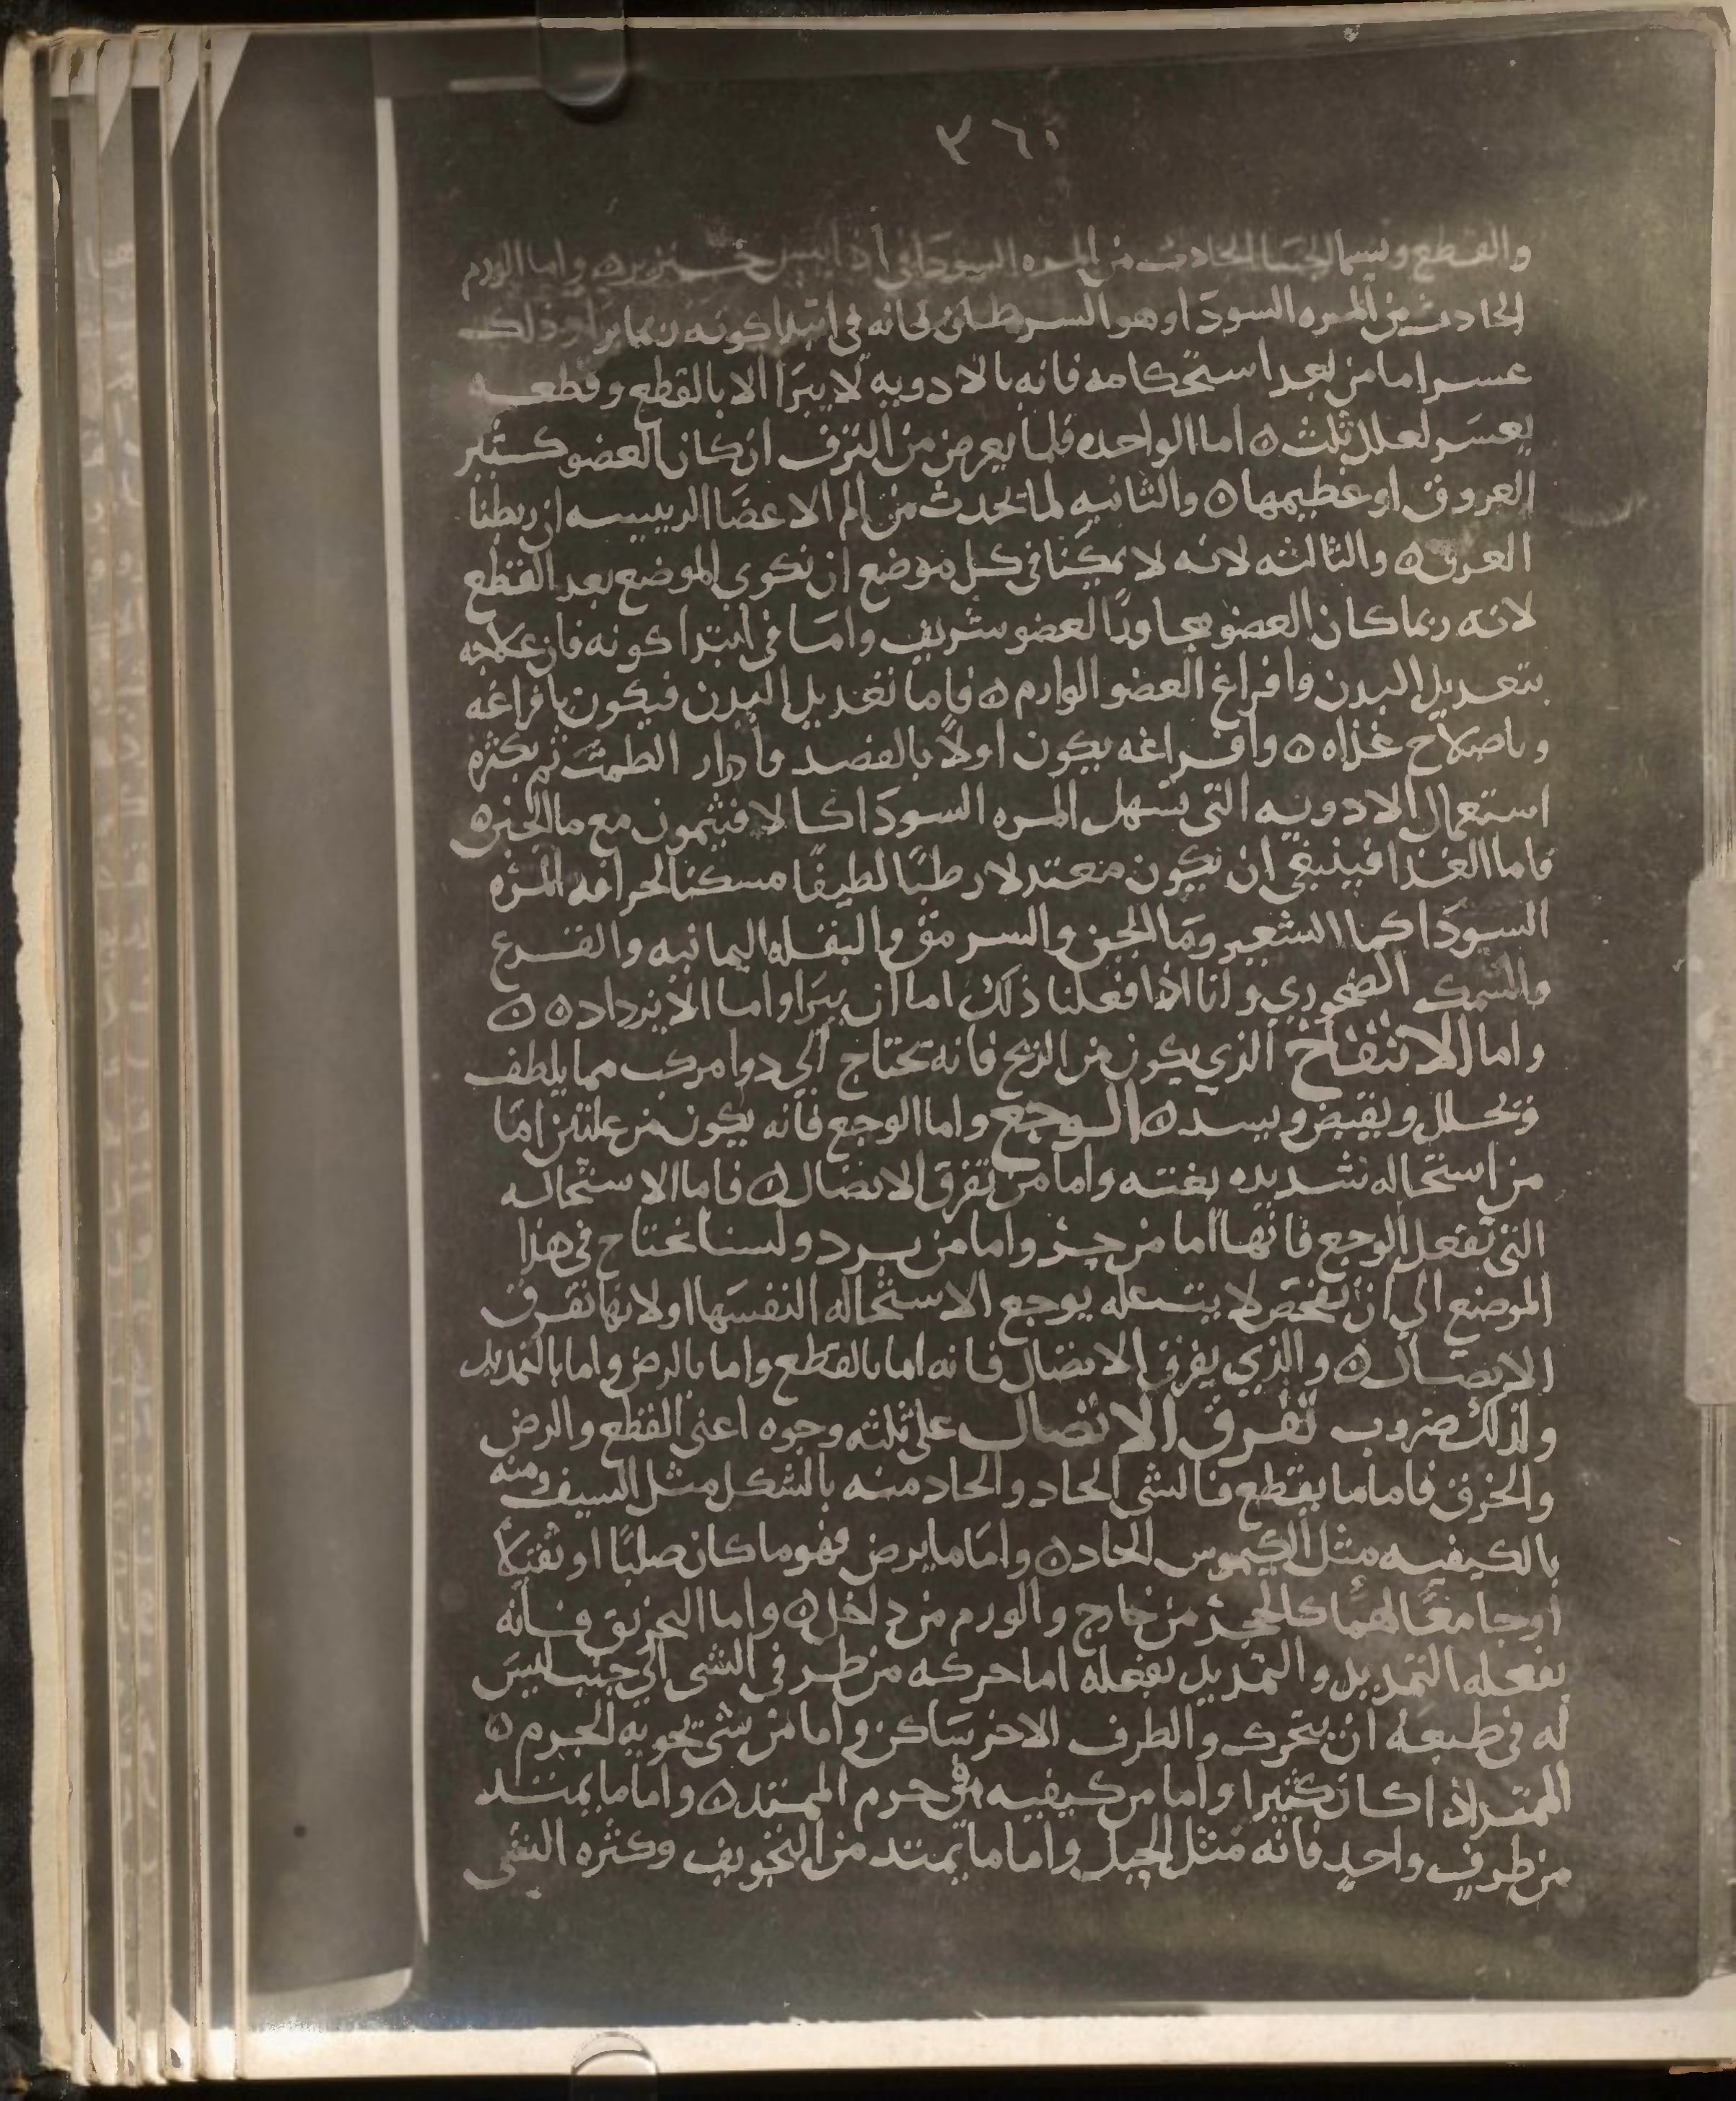 ٣٦٠
والقطع وسيما الجسا الحادث من المره السودا في اذا يبس واما الورم
الحادث من المره السودا وهو السرطان فانه في ابتدا كونه ربما برا وذلك
عسر اما من بعد استحكامه فانه بالادويه لا يبرا الا بالقطع وقطعه
يعسر لعلل ثلث ه اما الواحده فلما يعرض من النزف ان كان العضو كثير
العروق او عظيمها ه والثانيه لما تحدث من الم الاعضا الرييسه ان ربطنا
العرق ه والثالثه لانه لا يمكنا في كل موضع ان نكوي الموضع بعد القطع
لانه ربما كان العضو مجاورًا لعضو شريف واما في ابتدا كونه فان علاجه
بتعديل البدن وافراغ العضو الوارم ه فاما تعديل البدن فيكون بافراغه
وباصلاح غذاه ه وافراغه يكون اولًا بالفصد وادرار الطمث ثم بكثره
استعمال الادويه التي تسهل المره السودا كالافثيمون مع ما الجبن ه
فاما الغذا فينبغي ان يكون معتدلا رطبًا لطيفًا مسكنا لحرافه المره
السودا كما الشعير وما الجبن والسرمق والبقله اليمانيه والقرع
والسمك الصخوري وانا اذا فعلنا ذلك اما ان يبرا واما الا يزداد ه ه
واما الانتفاخ الذي يكون من الريح فانه تحتاج الي دوا مركب مما يلطف
وتحلل ويقبض ويسد ه الوجع واما الوجع فانه يكون من علتين اما
من استحاله شديده بغته واما من تفرق الاتصال ه فاما الاستحاله
التي تفعل الوجع فانها اما من حر واما من برد ولسنا نحتاج في هذا
الموضع الي ان نفحص لايت عله يوجع الاستحاله النفسها او لانها تفرق
الاتصال ه والذي يفرق الاتصال فانه اما بالقطع واما بالرض واما بالتمديد
ولذلك ضروب تفرق الاتصال علي ثلثه وجوه اعني القطع والرض
والخرق فاما ما يقطع فالشي الحاد والحاد منه بالشكل مثل السيف ومنه
بالكيفيه مثل الكيموس الحاد ه واما ما يرض فهو ما كان صلبًا او ثقيلًا
او جامعًا لهما كالحجر من خارج والورم من داخل ه واما التخريق فانه
يفعله التمديد والتمديد يفعله اما حركه من طرفي الشي الي جنب ليس
له في طبعه ان يتحرك والطرف الاخر ساكن واما من شي يحويه الجرم ه
الممتد اذا كان كثيرا واما من كيفيه في جرم الممتد ه واما ما يمتد
من طرف واحد فانه مثل الحبل واما ما يمتد من التجويف وكثره الشي